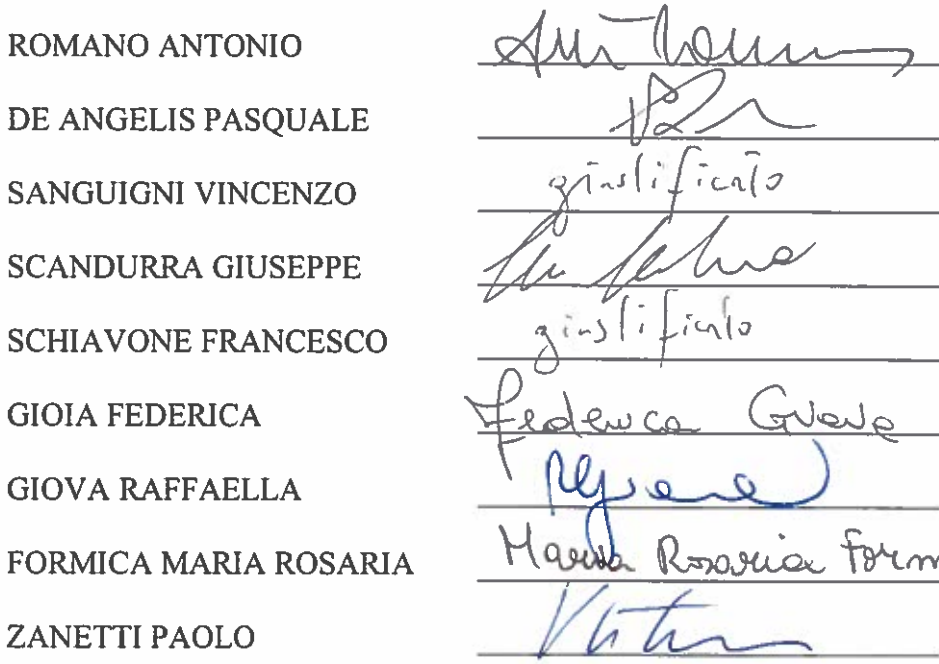 ROMANO ANTONIO
DE ANGELIS PASQUALE
SANGUIGNI VINCENZO giustificato
SCANDURRA GIUSEPPE
SCHIAVONE FRANCESCO giustificato
GIOIA FEDERICA Federica Gioia
GIOVA RAFFAELLA
FORMICA MARIA ROSARIA Maria Rosaria Form
ZANETTI PAOLO